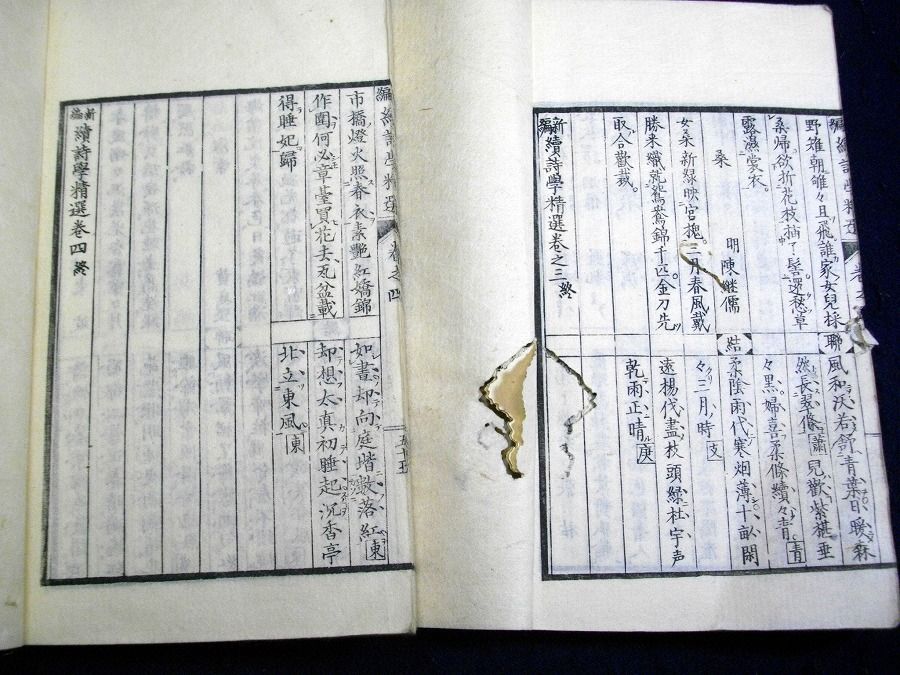 編續詩學精選 卷之
野雉朝雊々且飛誰家女兒採
桑婦欲折花枝插了髻還愁草
露濕裳衣。
桑
明陳継儒
女桑新緑映宮槐。三月春風戴
勝来織就鴛鴦錦千匹。金刀先
取合歡裁。
聯風和淡若舒青葉日暖森
然長翠條蕭兒歡紫椹垂
々黒婦喜柔條續々青青
結柔陰雨代寒烟薄十畝閑
々三月時支
遠揚伐盡枝頭緑杜宇声
乾雨正晴庚
新編續詩學精選卷之三終
編續詩學精選 卷之四
五十五
市橋燈火照春衣素艷紅嬌錦
作圍何必章臺買花去瓦盆載
得睡妃歸
如畫却向庭堦落紅東
却想太真初睡起沉香亭
北立東風東
新編續詩學精選卷四終